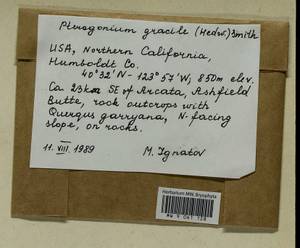 Pterogonium gracile (Hedw.) Smith
USA, Northern California,
Humboldt Co.
40°32'N - 123°57'W, 850m elev.
Ca. 23km SE of Arcata, Ashfield
Butte, rock outcrops with
Quercus garryana, N-facing
slope, on rocks.
11. VIII. 1989 M. Ignatov
Herbarium MW, Bryophyta